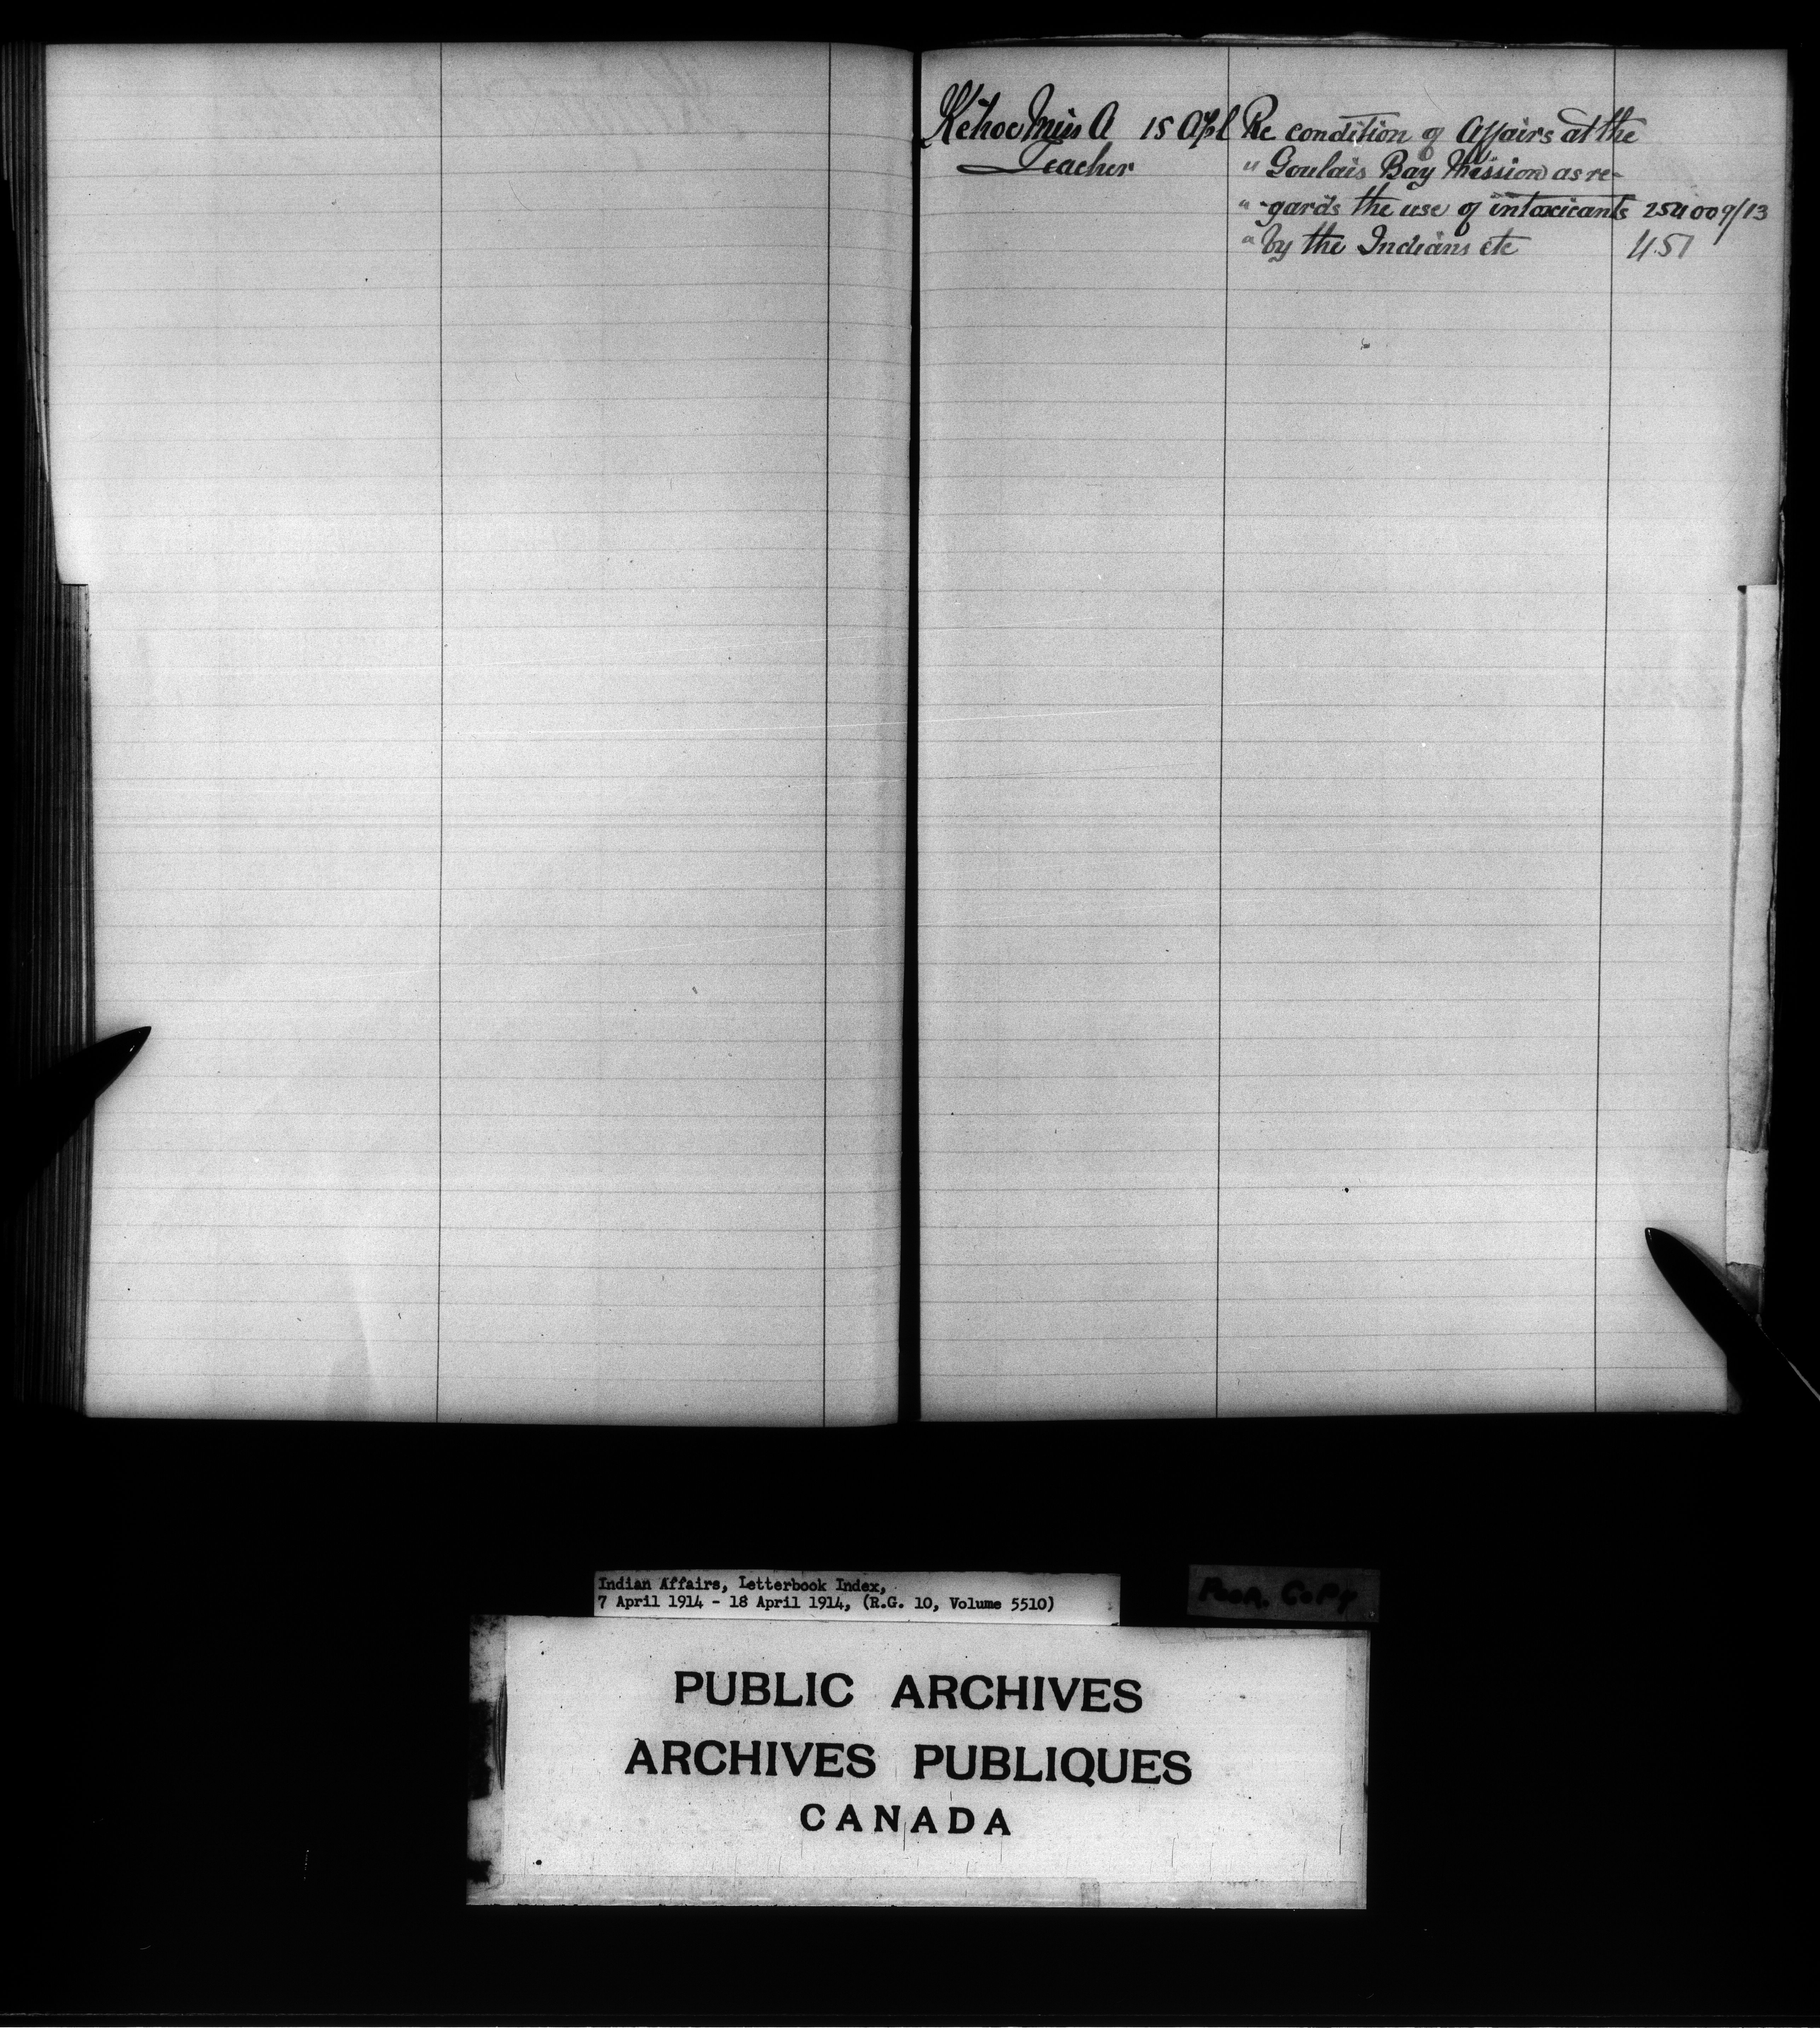 Kehoe Miss A 15 Apl Re condition of Affairs at the
Teacher " Goulais Bay Mission as re-
" -gards the use of intoxicants 254009/13
" by the Indians etc 451
Indian Affairs, Letterbook Index,
7 April 1914 - 18 April 1914, (R.G. 10, Volume 5510)
Poor Copy
PUBLIC ARCHIVES
ARCHIVES PUBLIQUES
CANADA